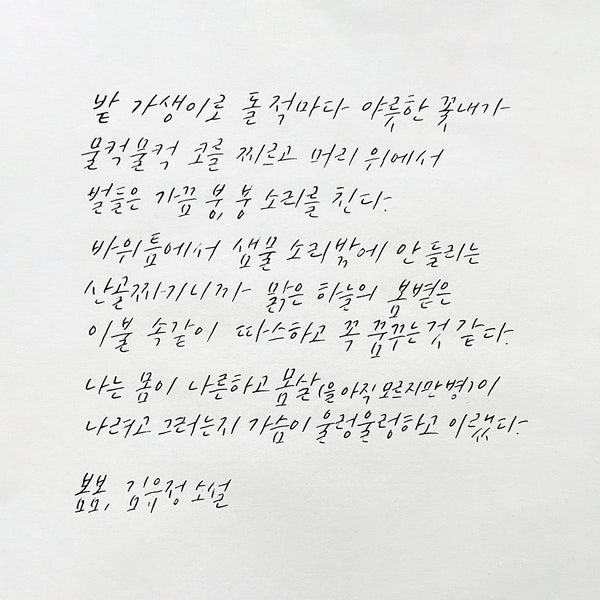 밭 가생이로 돌 적마다 야릇한 꽃내가
물컥물컥 코를 찌르고 머리 위에서
벌들은 가끔 붕, 붕 소리를 친다.
바위틈에서 샘물 소리밖에 안 들리는
산골짜기니까 맑은 하늘의 봄볕은
이불 속같이 따스하고 꼭 꿈꾸는것 같다.
나는 몸이 나른하고 몸살(을 아직 모르지만 병)이
나려고 그러는지 가슴이 울렁울렁하고 이랬다.
봄봄, 김유정 소설